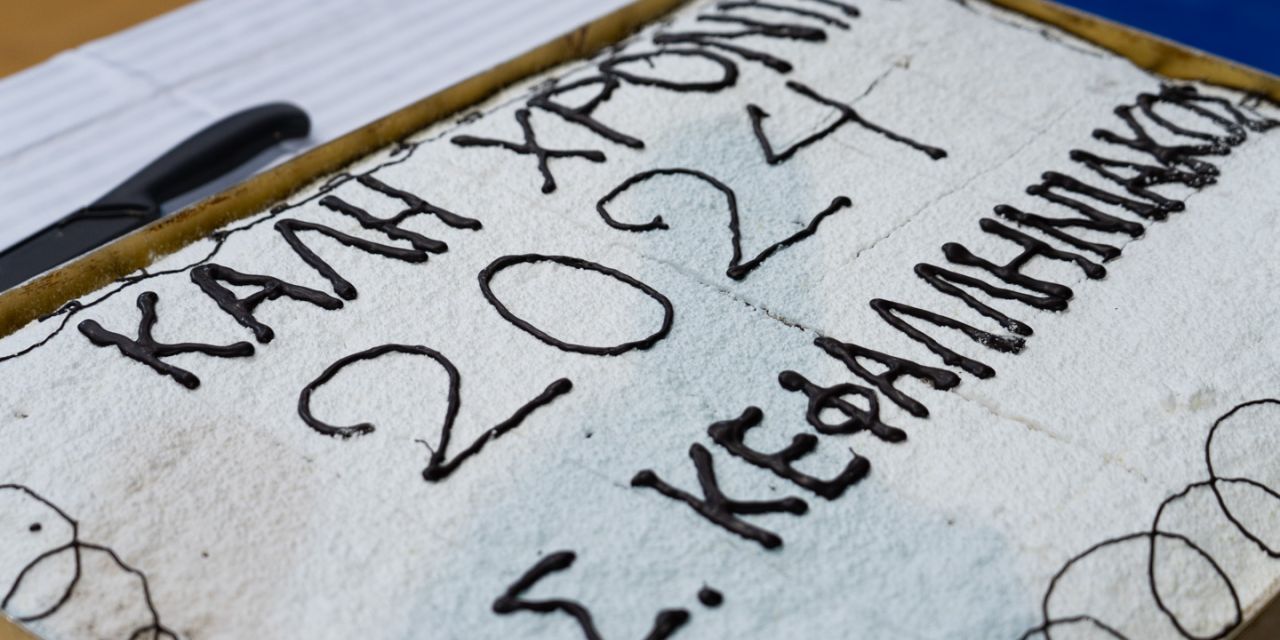 ΚΑΛΗ ΧΡΟΝΙΑ
2024
Σ. ΚΕΦΑΛΛΗΝΙΑΚΟΣ